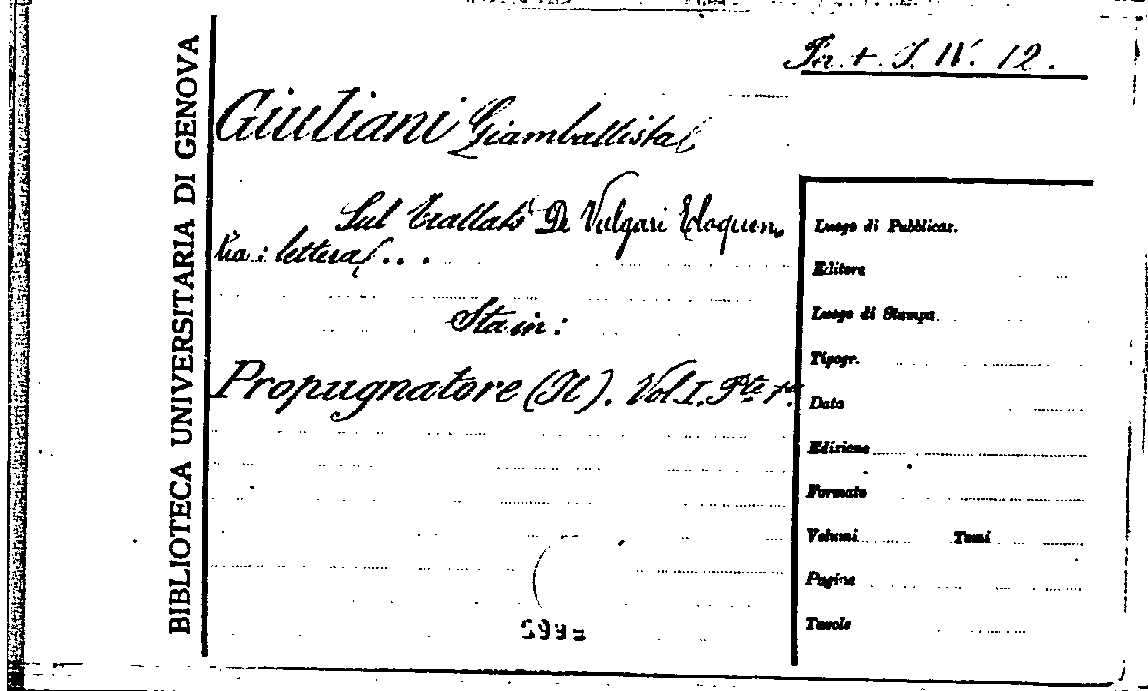 BIBLIOTECA UNIVERSITARIA DI GENOVA
Per. + I. IV. 12.
Giuliani Giamballista
Sul Trattato De Vulgari Eloquen-
tia: lettera...
Sta in:
Propugnatore (Il). Vol. I. Pte 1ª.
Luogo di Pubblicaz.
Editore
Luogo di Stampa
Tipogr.
Data
Edizione
Formato
Volumi Tomi
Pagine
Tavole